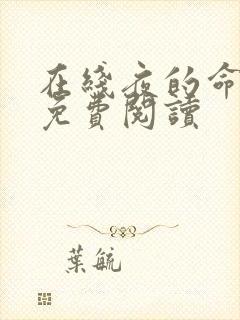 在綫夜的命
免費閱讀
葉毓